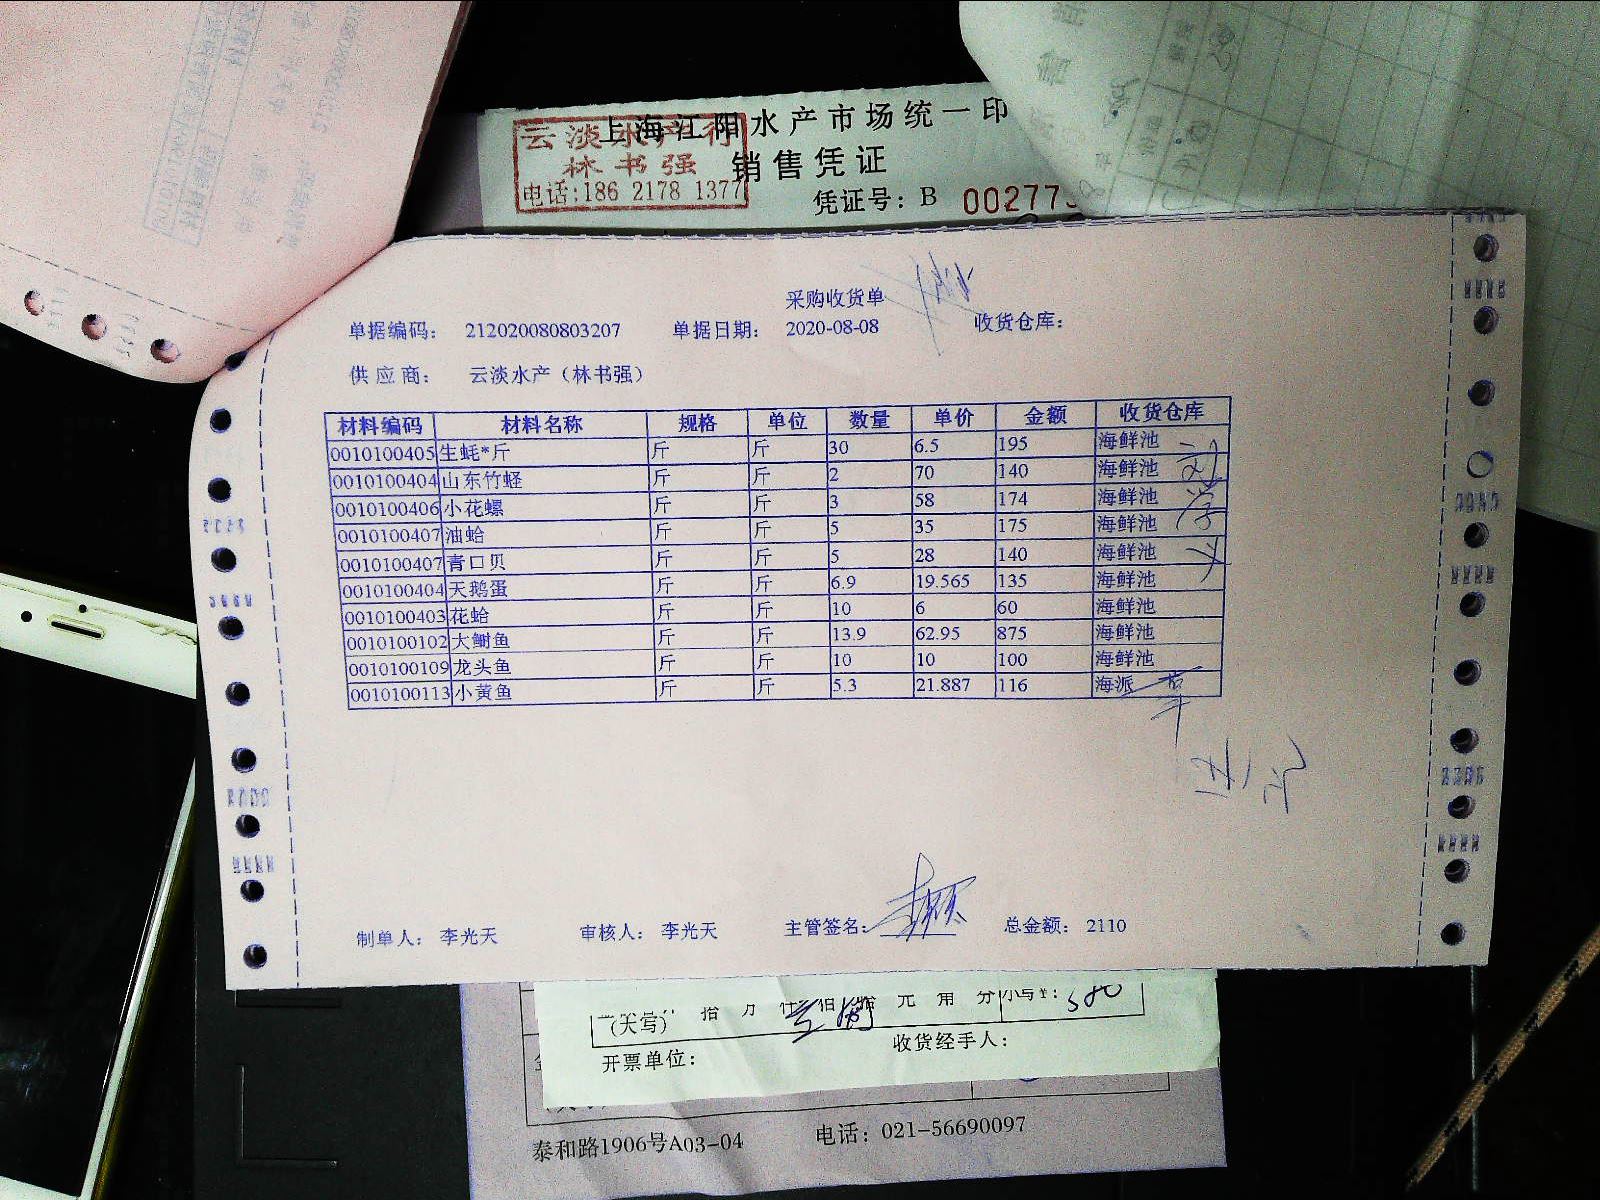 上海江阳水产市场统一印
云淡水产行
林书强
电话:186 2178 1377
销售凭证
凭证号: B 002773
采购收货单
单据编码: 212020080803207 单据日期: 2020-08-08 收货仓库:
供应商: 云淡水产（林书强）
材料编码 材料名称 规格 单位 数量 单价 金额 收货仓库
0010100405 生蚝*斤 斤 斤 30 6.5 195 海鲜池
0010100404 山东竹蛏 斤 斤 2 70 140 海鲜池
0010100406 小花螺 斤 斤 3 58 174 海鲜池
0010100407 油蛤 斤 斤 5 35 175 海鲜池
0010100407 青口贝 斤 斤 5 28 140 海鲜池
0010100404 天鹅蛋 斤 斤 6.9 19.565 135 海鲜池
0010100403 花蛤 斤 斤 10 6 60 海鲜池
0010100102 大鮰鱼 斤 斤 13.9 62.95 875 海鲜池
0010100109 龙头鱼 斤 斤 10 10 100 海鲜池
0010100113 小黄鱼 斤 斤 5.3 21.887 116 海派
制单人: 李光天 审核人: 李光天 主管签名: 总金额: 2110
(大写) 拾 万 仟 佰 拾 元 角 分 小写¥: 580
开票单位: 收货经手人:
泰和路1906号A03-04 电话: 021-56690097